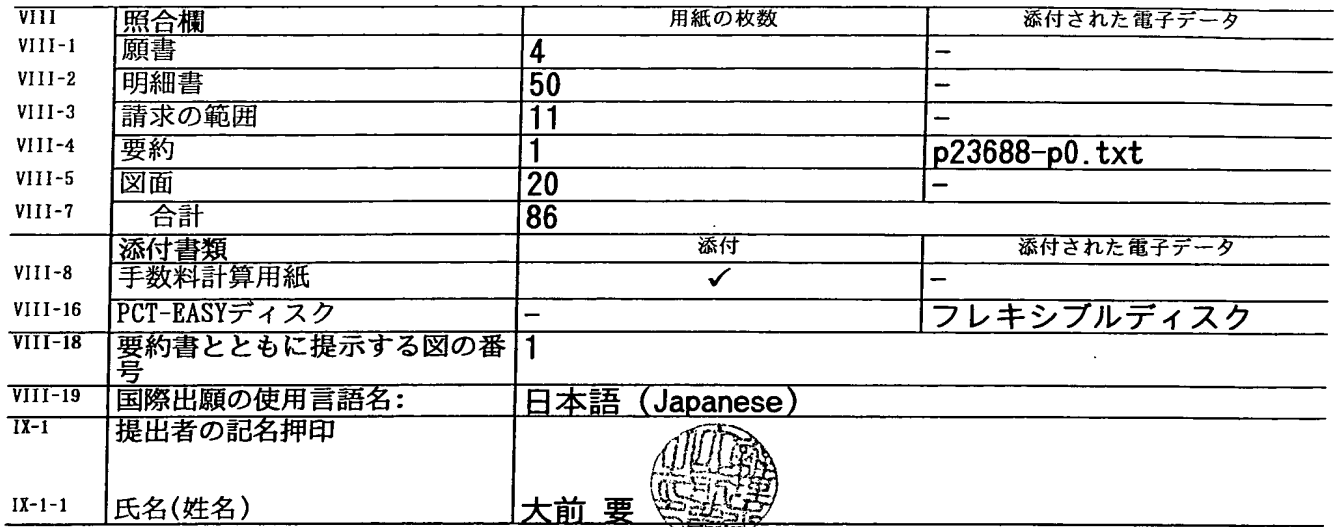 VIII 照合欄 用紙の枚数 添付された電子データ
VIII-1 願書 4 -
VIII-2 明細書 50 -
VIII-3 請求の範囲 11 -
VIII-4 要約 1 p23688-p0.txt
VIII-5 図面 20 -
VIII-7 合計 86
添付書類 添付 添付された電子データ
VIII-8 手数料計算用紙 ✓ -
VIII-16 PCT-EASYディスク - フレキシブルディスク
VIII-18 要約書とともに提示する図の番 1
号
VIII-19 国際出願の使用言語名: 日本語 (Japanese)
IX-1 提出者の記名押印
IX-1-1 氏名(姓名) 大前 要